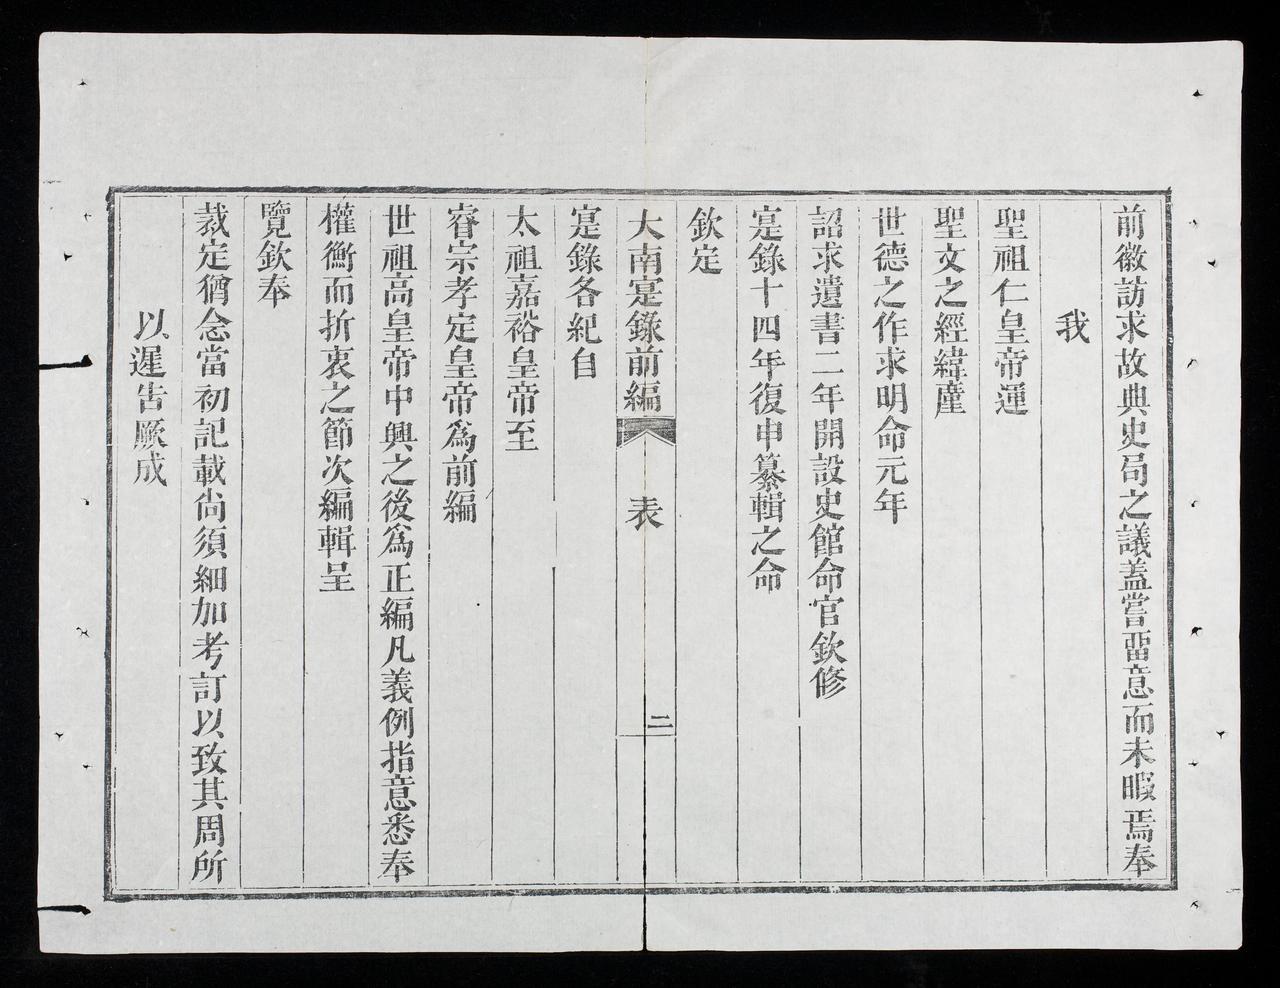 前徽訪求故典史局之議蓋嘗畱意而未暇焉奉
我
聖祖仁皇帝運
聖文之經緯廑
世德之作求明命元年
詔求遺書二年開設史館命官欽修
寔錄十四年復申纂輯之命
欽定
大南寔錄前編 表 二
寔錄各紀自
太祖嘉裕皇帝至
睿宗孝定皇帝爲前編
世祖高皇帝中興之後爲正編凡義例指意悉奉
權衡而折衷之節次編輯呈
覽欽奉
裁定猶念當初記載尚須細加考訂以致其周所
以遲告厥成